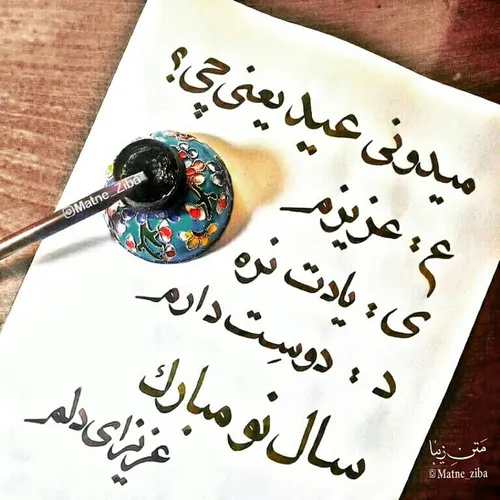 میدونی عید یعنی چی؟
ع: عزیزم
ی: یادت نره
د: دوسِت دارم
سال نو مبارک
عزیزای دلم
متن زیبا
@Matne_ziba
@Matne_Ziba